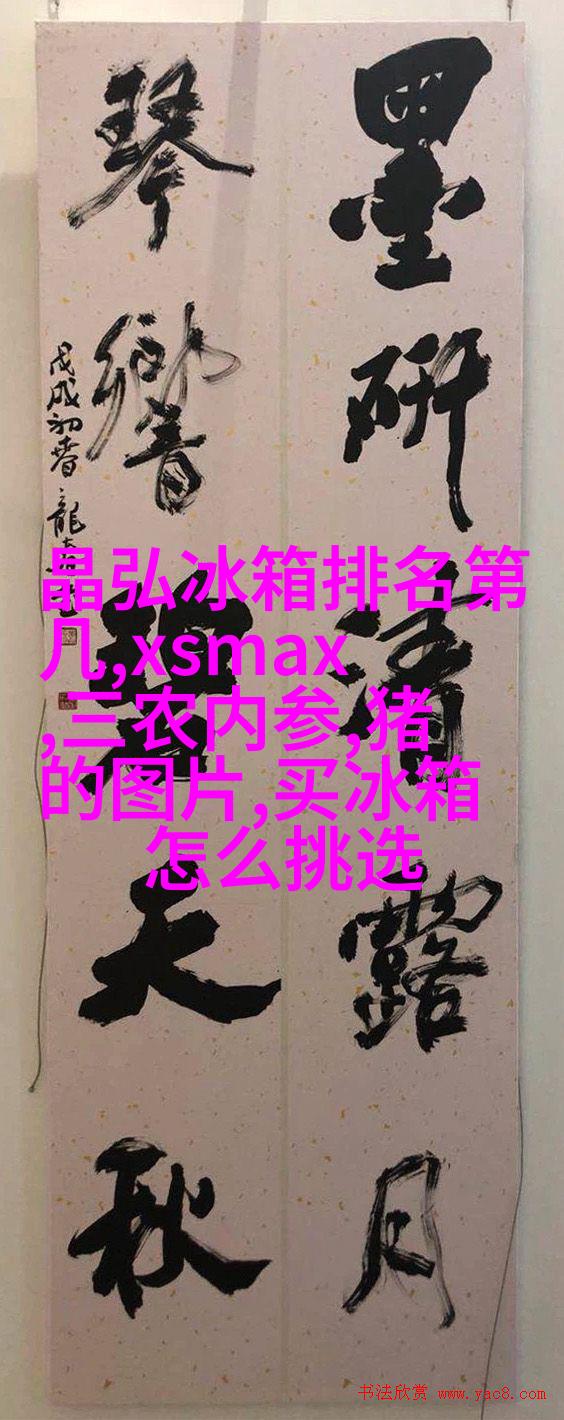 墨研清露月
琴響碧天秋
戊戌初春
龍
晶弘冰箱排名第
几,xsmax
,三农内参,猪
的图片,买冰箱
怎么挑选
书法欣赏 www.yac8.com